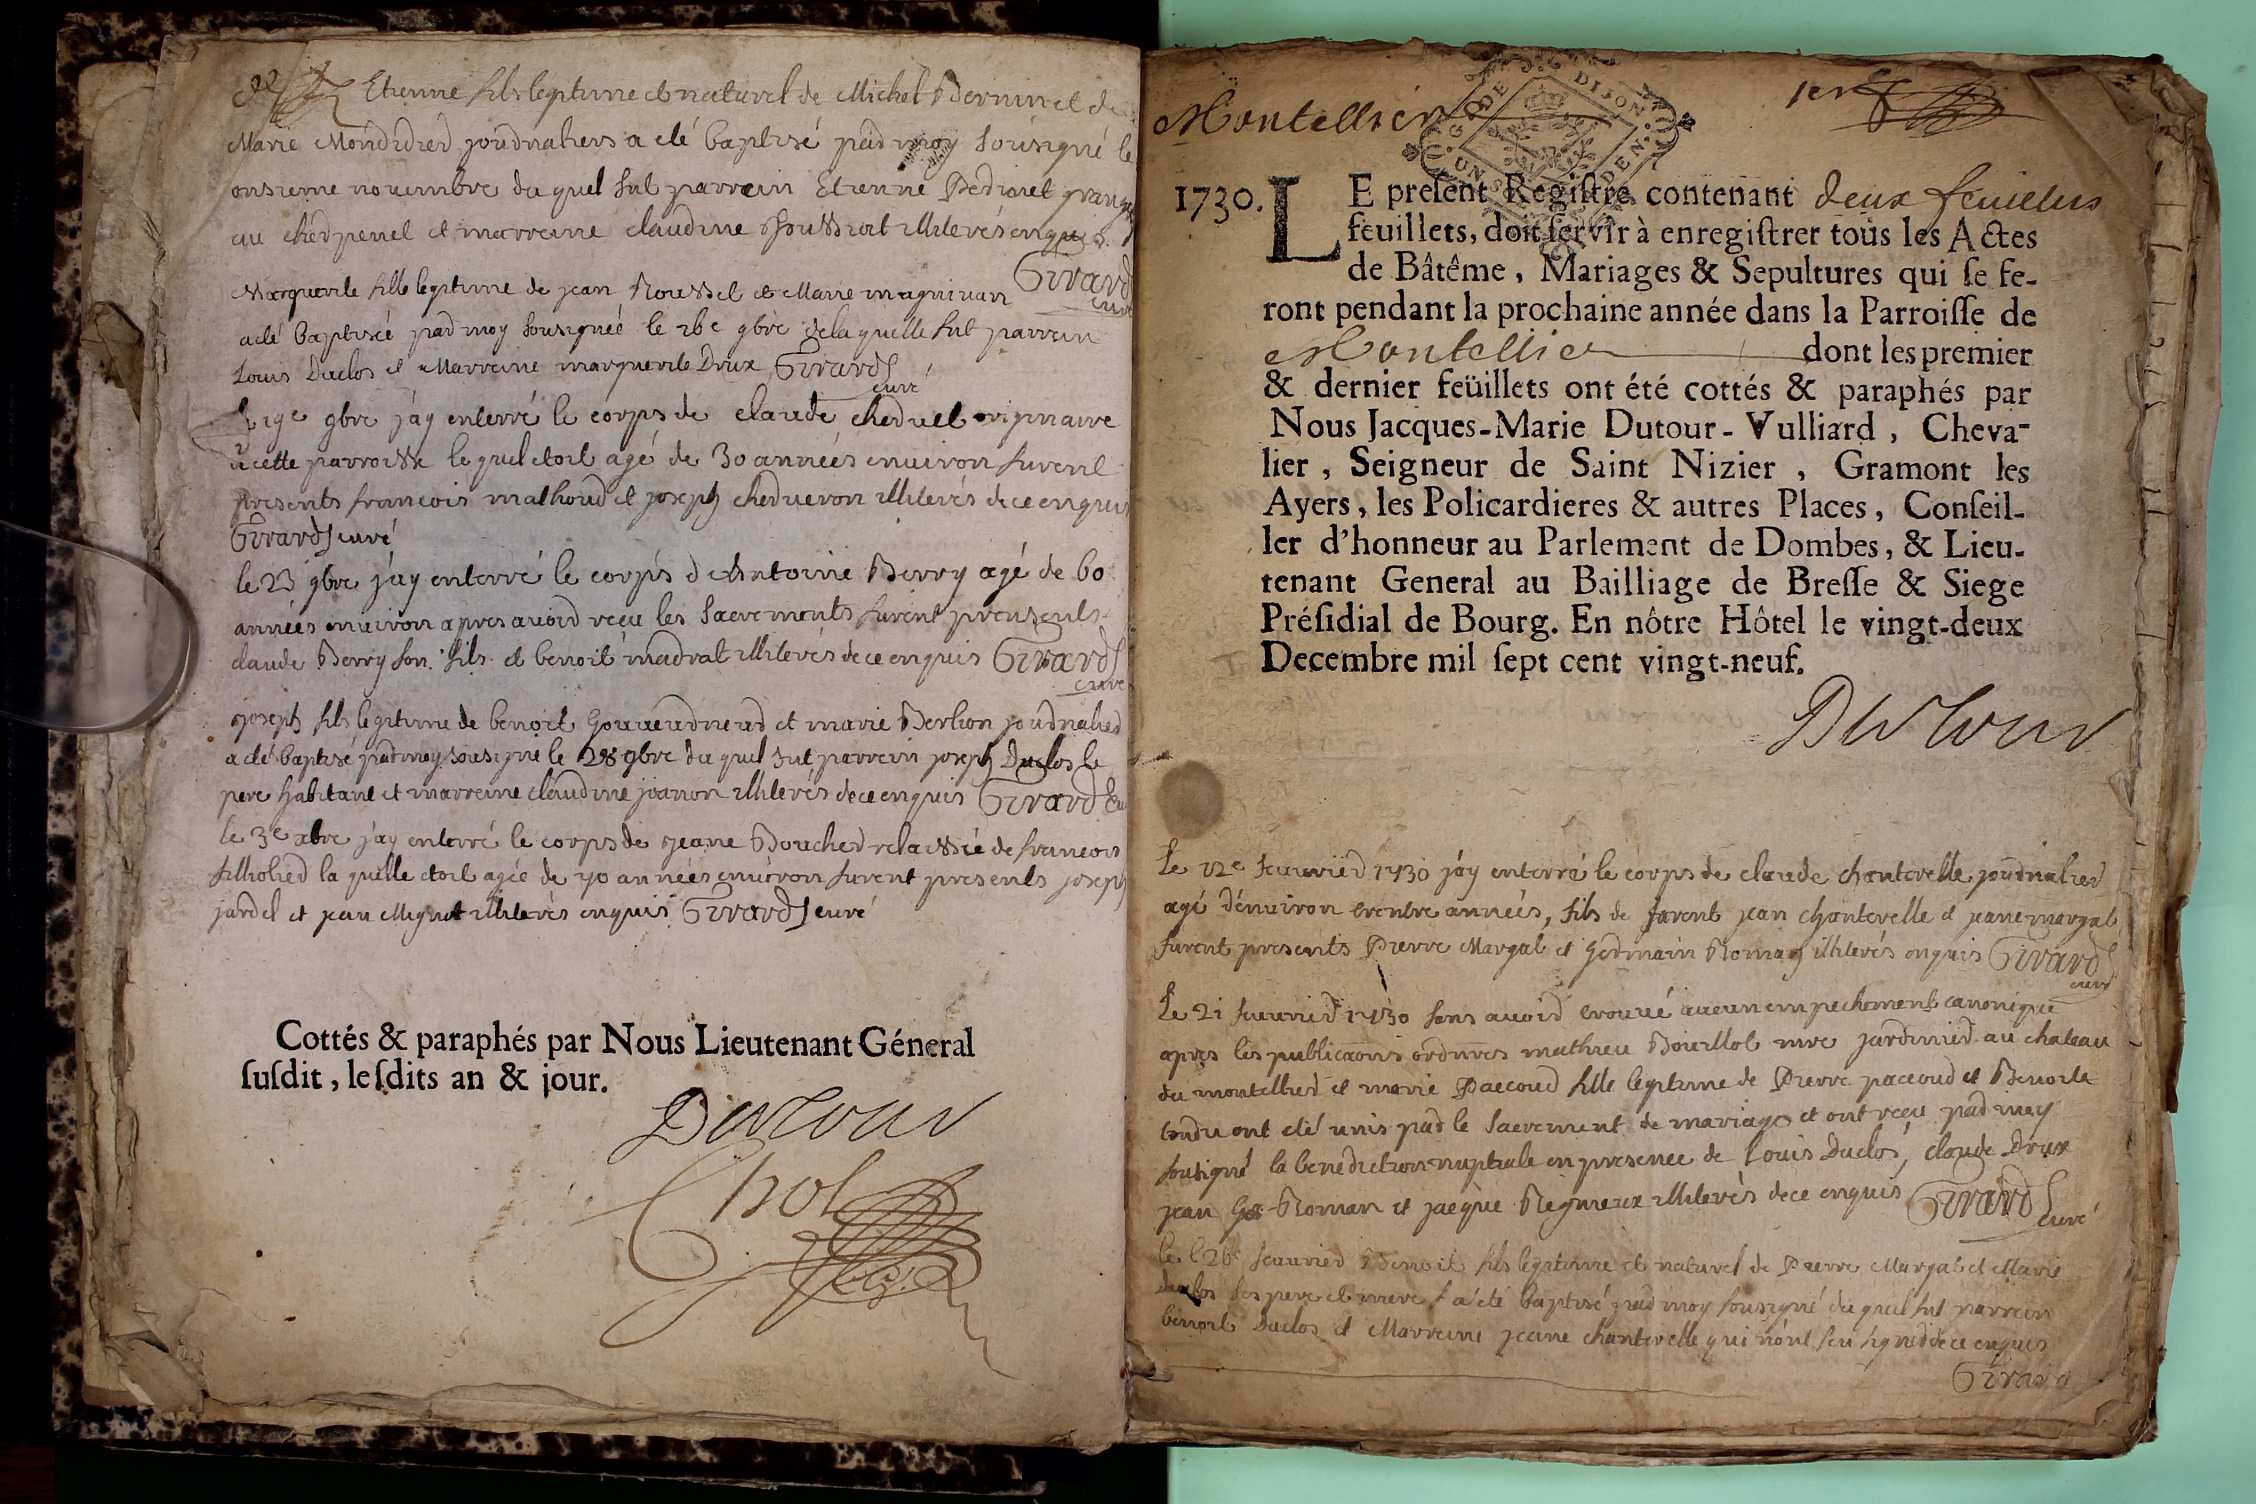 Etienne fils legitime et naturel de Michel Bernin et de
Marie Mondidier journaliers a été baptisé par moy sousigné le
onzieme novembre du quel fut parrein Etienne Pedriolet granger
au chedpenel et marreine claudine Roussiat illiterés enquis
Girard curé
Marguerite fille legitime de jean Roussel et Marie magninan
a été baptisée par moy sousigneé le 26e 9bre de laquelle fut parrain
Louis Duclos et Marreine marguerite Drux Girard
curé
Le 19e 9bre j'ay enterré le corps de claude cheduel originaire
d cette parroisse le quel etoit agé de 30 années enuiron furent
presents francois mathoud et joseph chedueron illiterés de ce enquis
Girard curé
le 23 9bre j'ay enterré le corps d Antoine Berry agé de 60
années enuiron apres auoir reçu les Sacrements furent presents
claude Berry son fils et benoit madrat illiterés de ce enquis Girard
curé
joseph fils legitime de benoit Gouuerdneur et marie Berlion journalier
a été baptisé par moy sousigné le 28 9bre du quel fut parrein joseph Duclos le
pere habitant et marreine claudine joanon illiterés de ce enquis Girard cu
le 3e xbre j'ay enterré le corps de jeane Boucher relaissée de francois
filliolied la quelle etoit agée de 70 années enuiron furent presents joseph
jardel et jean Mignot illiterés enquis Girard curé
Cottés & paraphés par Nous Lieutenant Géneral
susdit, lesdits an & jour.
Dutour
Chol
Montellier
1er
G. DE DIJON
UN S. DEN.
1730. LE present Registre contenant deux feuillets
feuillets, doit servir à enregistrer tous les Actes
de Bâtême, Mariages & Sepultures qui se fe-
ront pendant la prochaine année dans la Parroisse de
Montellier dont les premier
& dernier feüillets ont été cottés & paraphés par
Nous Jacques-Marie Dutour-Vulliard, Cheva-
lier, Seigneur de Saint Nizier, Gramont les
Ayers, les Policardieres & autres Places, Conseil-
ler d'honneur au Parlement de Dombes, & Lieu-
tenant General au Bailliage de Bresse & Siege
Présidial de Bourg. En nôtre Hôtel le vingt-deux
Decembre mil sept cent vingt-neuf.
Dutour
Le 12e feuurier 1730 j'ay enterré le corps de claude chantevelle journalier
agé d'enuiron trentre années, fils de furent jean chontevelle et jeane margat
furent presents Pierre Margat et germain Roman illiterés enquis Girard
curé
Le 21 feuurier 1730 sans auoir trouué aucun empechement canonique
apres les publications ordinres mathieu Bouillot mre jardinier au chateau
du montellier et marie Paccoud fille legitime de Pierre paccoud et Benoite
tondu ont été unis par le Sacrement de mariage et ont reçu par moy
sousigné la benediction nuptiale en presence de Louis Duclos, claude Drux
jean Roman et jacque Rigmeux illiterés de ce enquis Girard
curé
le 26e feuurier Benoit fils legitime et naturel de Pierre Margat et Marie
duclos ses pere et mere a été baptisé par moy sousigné du quel fut parrein
benoit Duclos et Marreine jeane chantevelle qui n'ont seu signer de ce enquis
Girard